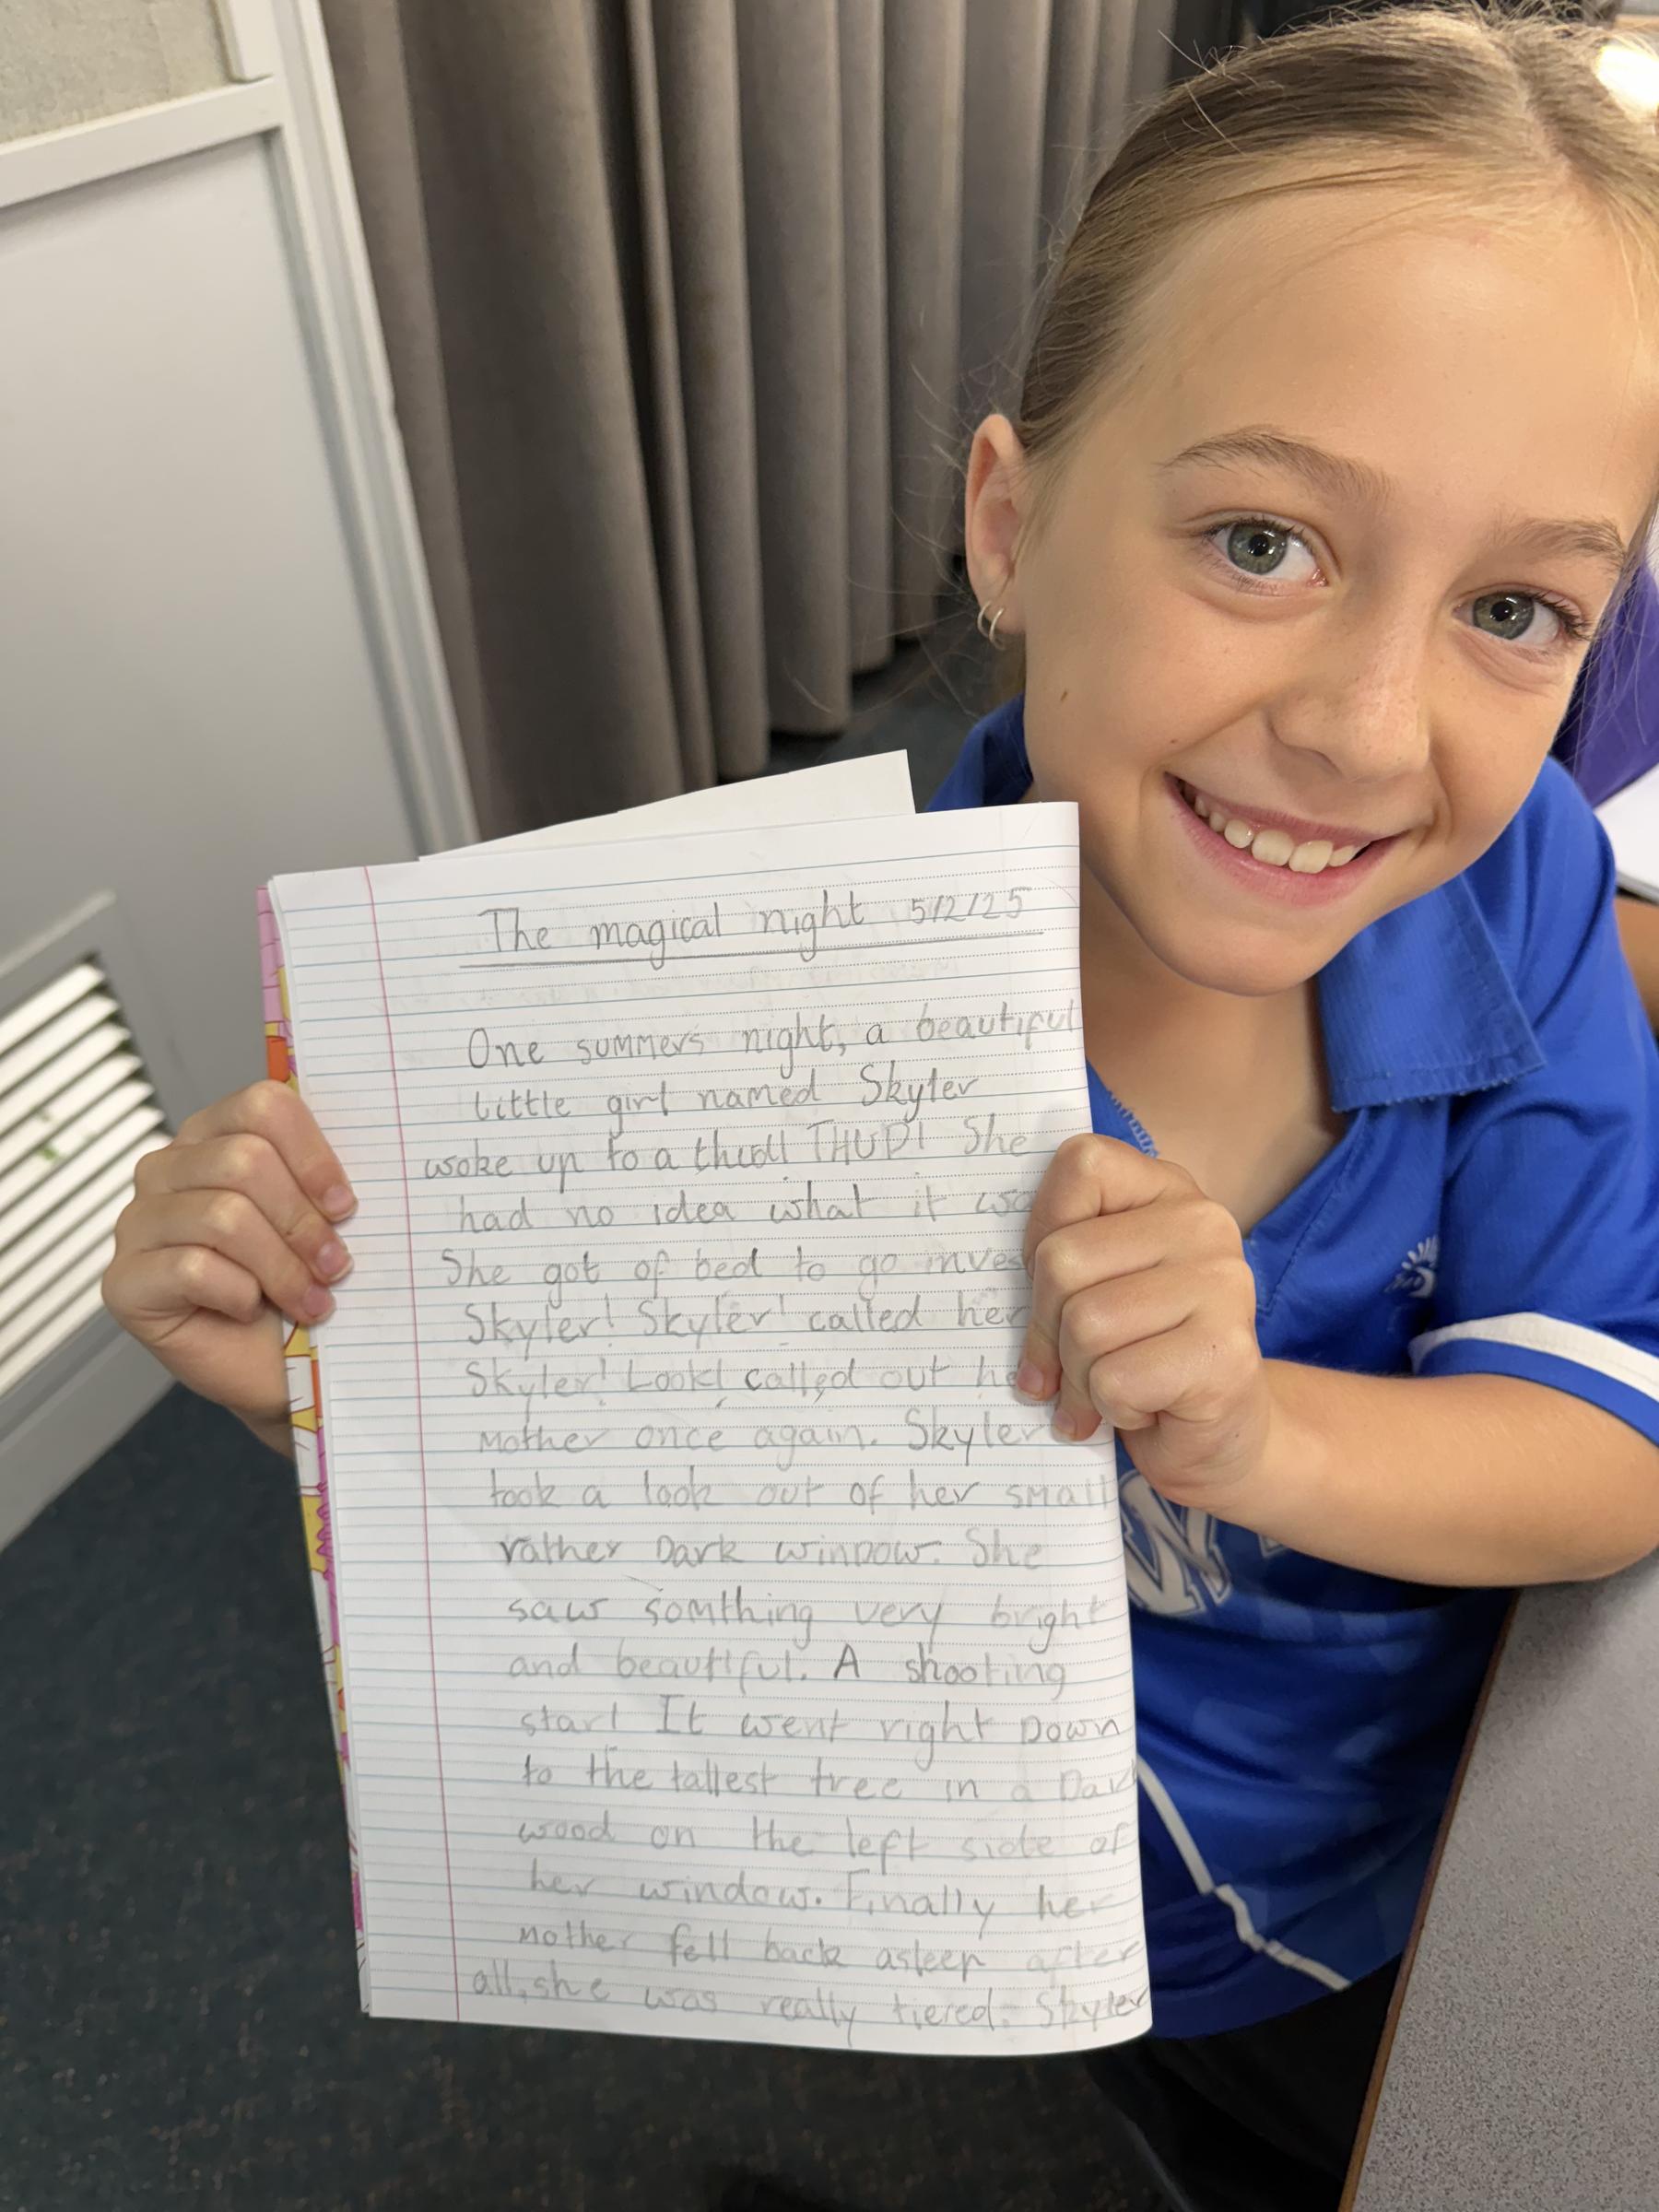 The magical night 5/2/25
One summers night, a beautiful
little girl named Skyler
woke up to a thud! THUD! She
had no idea what it
She got of bed to go
Skyler! Skyler! called her
Skyler! Look! called out
mother once again. Skyler
took a look out of her small
rather Dark winDow. She
saw somthing very bright
and beautiful. A shooting
star! It went right Down
to the tallest tree in a Dark
wood on the left side of
her window. Finally her
mother fell back asleep after
all, she was really tiered. Skyler